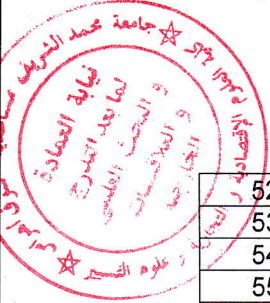 جامعة محمد الشريف مساعدية سوق أهراس
نيابة العمادة
لما بعد التدرج
و البحث العلمي
و العلاقات
الخارجية
و علوم التسيير
52
53
54
55